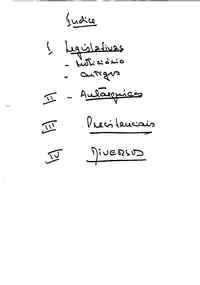 Índice
I Legislativas
- Noticiário
- Artigos
II - Autárquicas
III Presidenciais
IV DIVERSOS